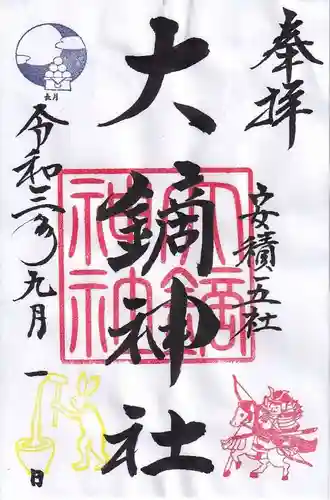 奉拝
安積五社
大鏑神社
大鏑神社
長月
令和三年九月一日